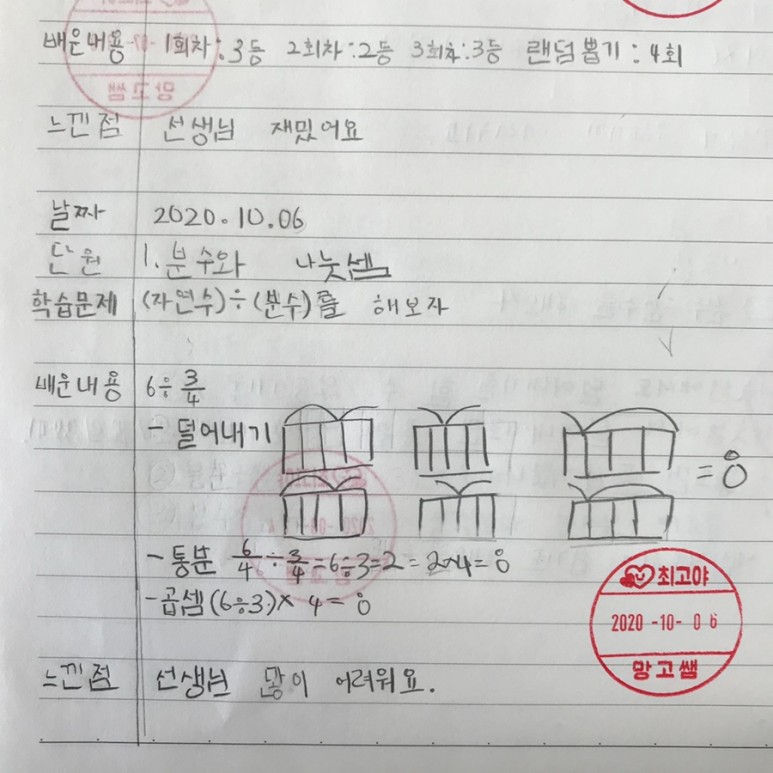 배운내용 1회차:3등 2회차:2등 3회차:3등 랜덤뽑기:4회
망고쌤
느낀점 선생님 재밌어요
날짜 2020.10.06
단원 1.분수와 나눗셈
학습문제 (자연수)÷(분수)를 해보자
배운내용 6÷3/4
-덜어내기
=8
-통분 6/4÷3/4=6÷3=2=2×4=8
-곱셈(6÷3)×4=8
최고야
2020-10-06
망고쌤
느낀점 선생님 많이 어려워요.